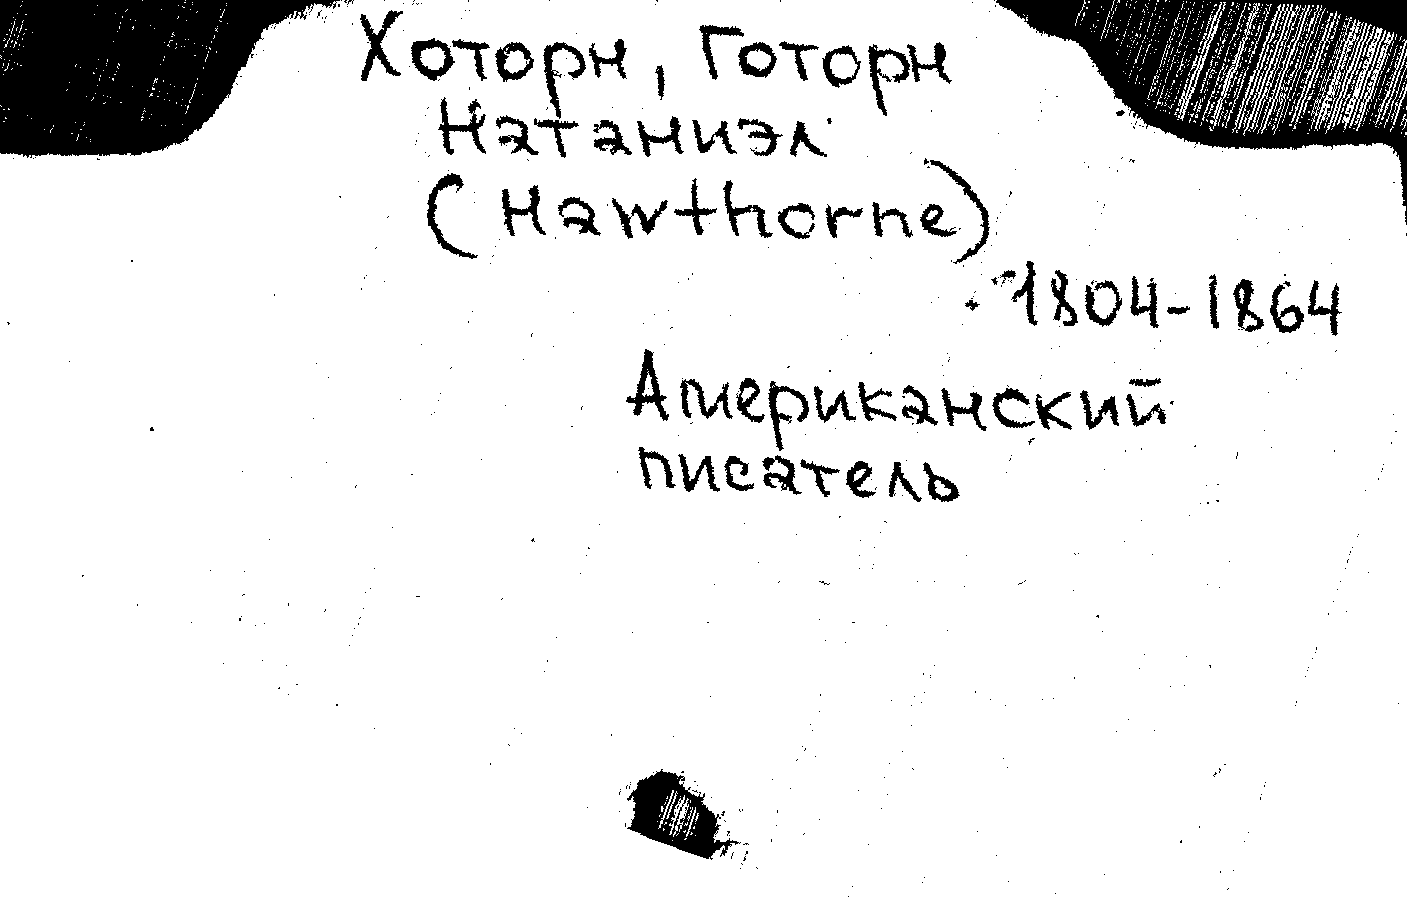 Хоторн, Готорн
Натаниэл
(Hawthorne)
1804-1864
Американский
писатель